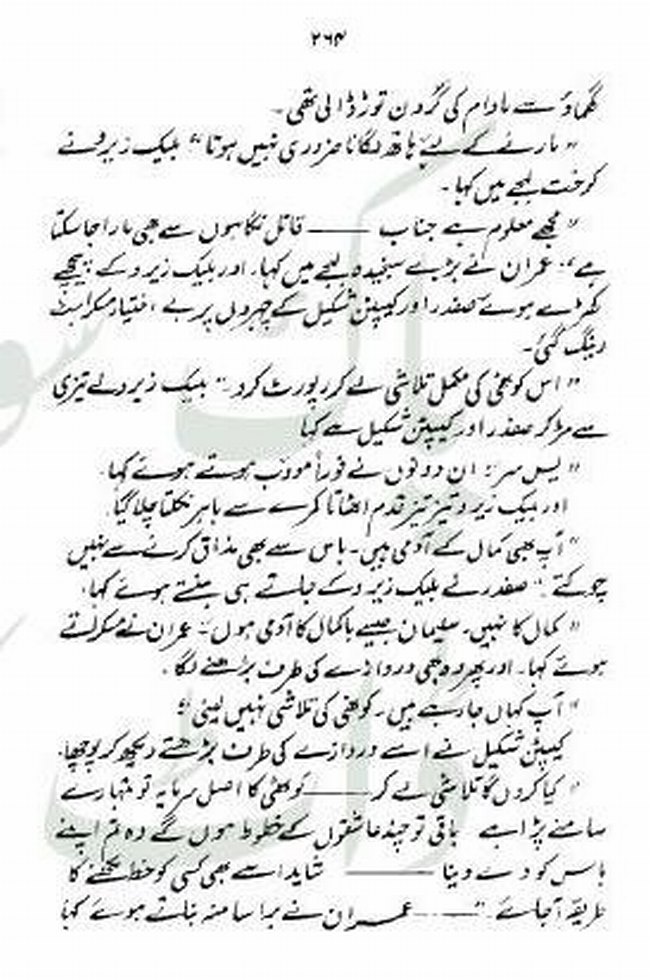 ۲۶۴
گھماؤ سے مادام کی گردن توڑ ڈالی تھی۔
" مارنے کے لیے ہاتھ لگانا ضروری نہیں ہوتا " بلیک زیرو نے
کرخت لہجے میں کہا۔
" مجھے معلوم ہے جناب ——— قاتل نگاہوں سے بھی مارا جا سکتا
ہے"۔ عمران نے بڑے سنجیدہ لہجے میں کہا۔ اور بلیک زیرو کے پیچھے
کھڑے ہوئے صفدر اور کیپٹن شکیل کے چہروں پر بے اختیار مسکراہٹ
رینگ گئی۔
" اس کوٹھی کی مکمل تلاشی لے کر رپورٹ کرو۔" بلیک زیرو نے تیزی
سے مڑ کر صفدر اور کیپٹن شکیل سے کہا
" یس سر " ان دونوں نے فوراً مودب ہوتے ہوئے کہا۔
اور بلیک زیرو تیز تیز قدم اٹھاتا کمرے سے باہر نکلتا چلا گیا۔
" آپ بھی کمال کے آدمی ہیں۔ باس سے بھی مذاق کرنے سے نہیں
چوکتے ۔" صفدر نے بلیک زیرو کے جاتے ہی ہنستے ہوئے کہا۔
" کمال کا نہیں۔ سلیمان جیسے باکمال کا آدمی ہوں "۔ عمران نے مسکراتے
ہوئے کہا۔ اور پھر وہ بھی دروازے کی طرف بڑھنے لگا۔
" آپ کہاں جا رہے ہیں۔ کوٹھی کی تلاشی نہیں لینی "؟
کیپٹن شکیل نے اسے دروازے کی طرف بڑھتے دیکھ کر پوچھا۔
" کیا کروں گا تلاشی لے کر ——— کوٹھی کا اصل سرمایہ تو تمہارے
سامنے پڑا ہے باقی تو چند عاشقوں کے خطوط ہوں گے وہ تم اپنے
باس کو دے دینا ——— شاید اسے بھی کسی کو خط لکھنے کا
طریقہ آ جائے ۔" ——— عمران نے برا سا منہ بناتے ہوئے کہا